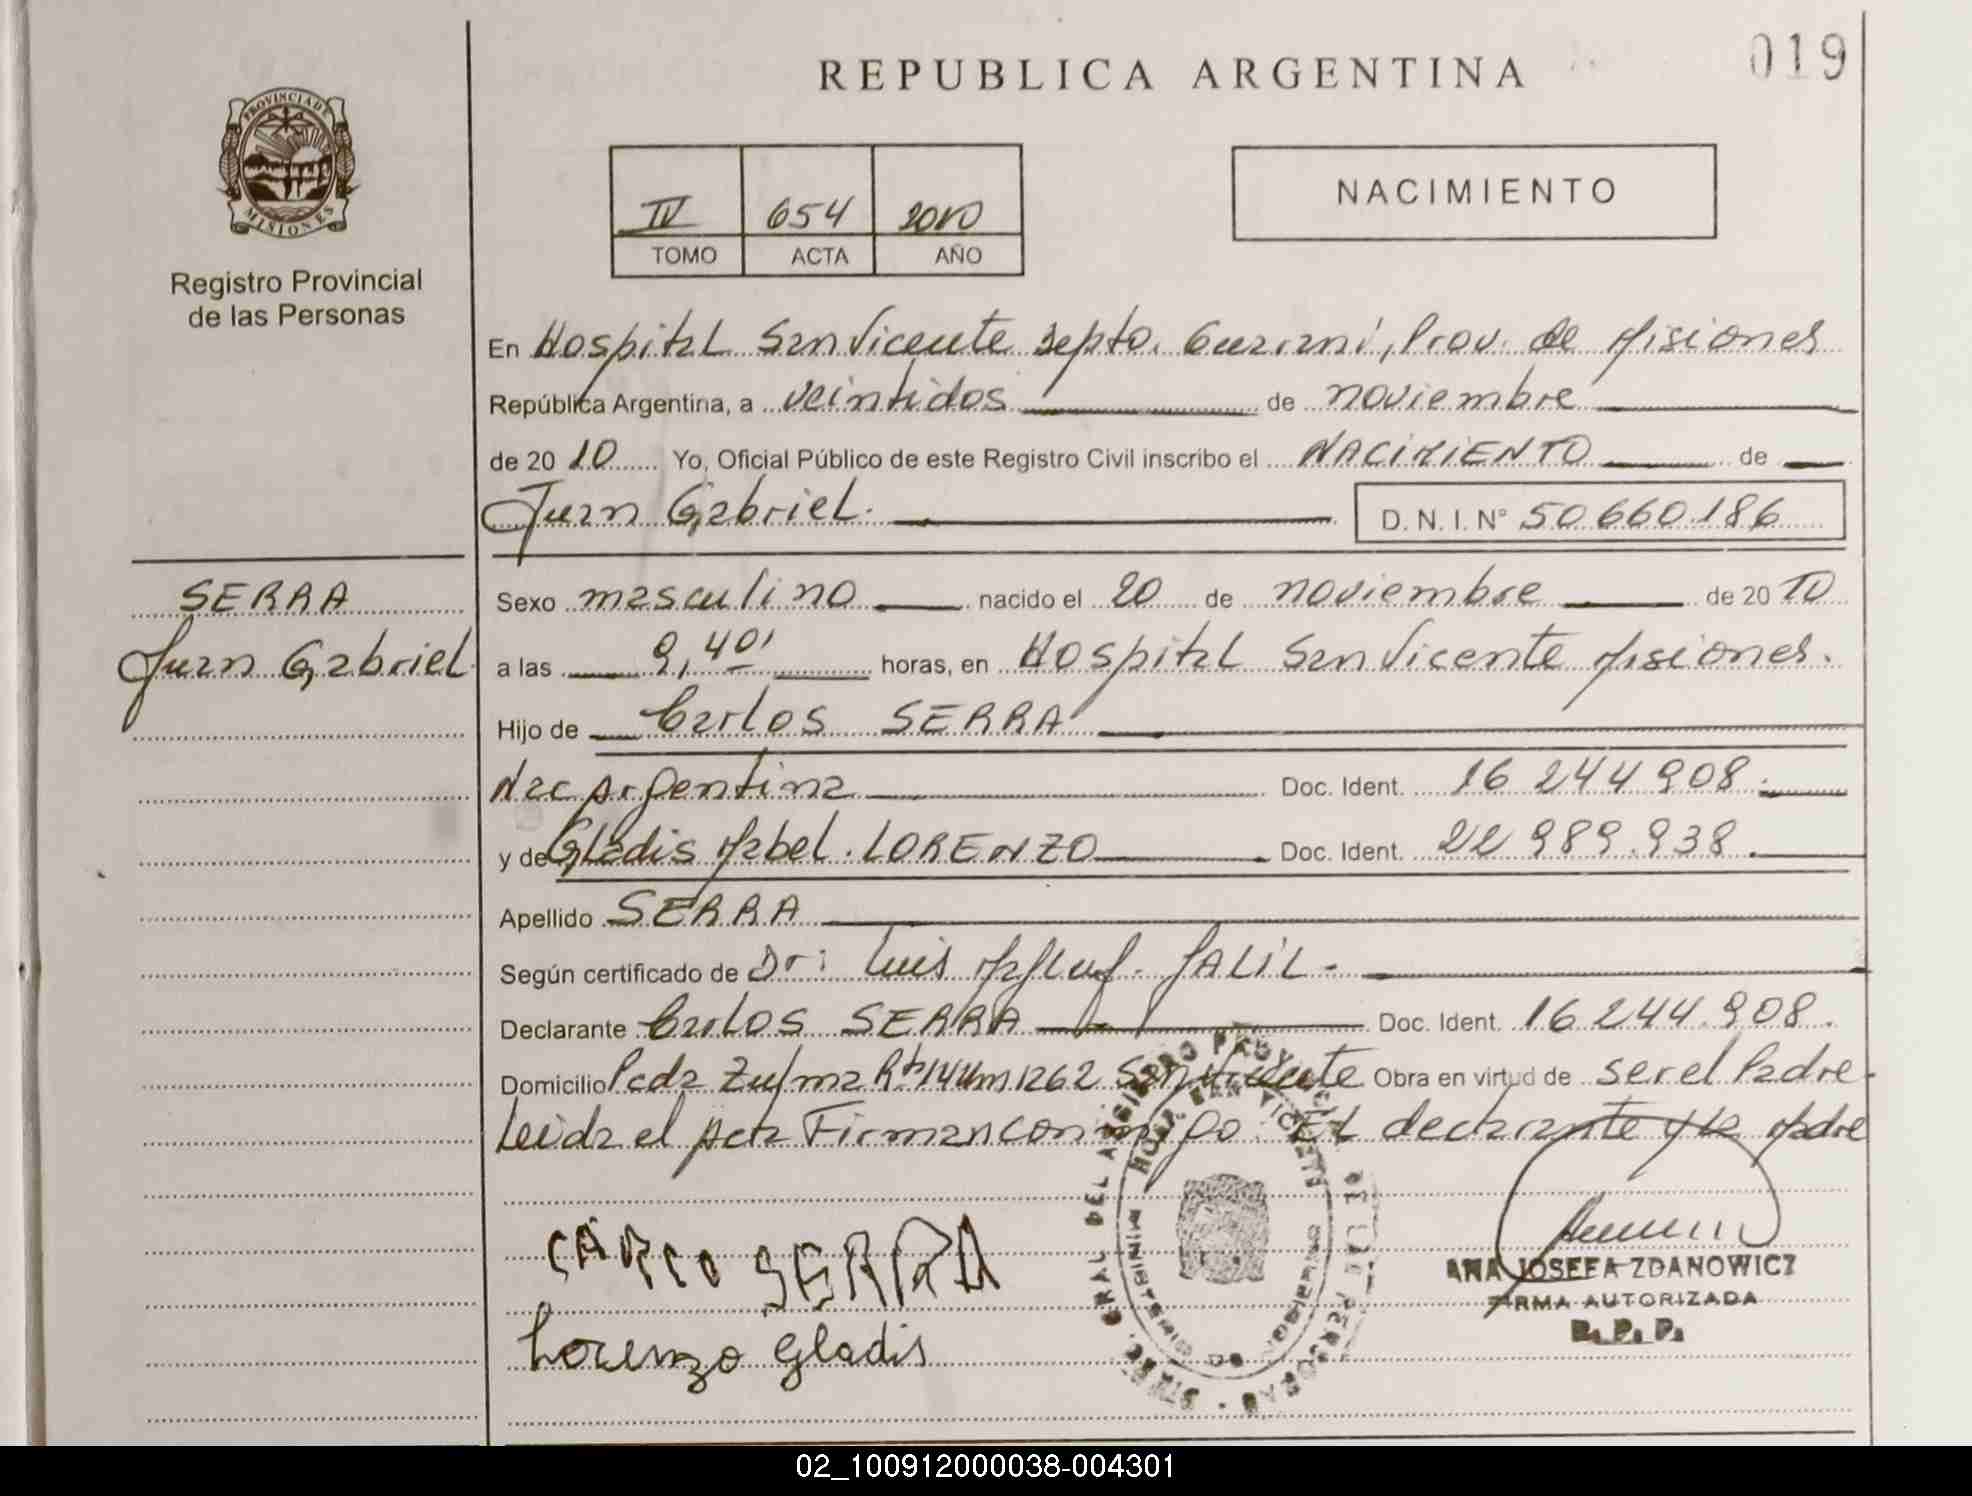 019
REPUBLICA ARGENTINA
PROVINCIA DE
MISIONES
Registro Provincial
de las Personas
IV 654 2010
TOMO ACTA AÑO
NACIMIENTO
En Hospital San Vicente Depto. Guarani, Prov. de Misiones
República Argentina, a veintidos de noviembre
de 20 10 Yo, Oficial Público de este Registro Civil inscribo el NACIMIENTO de
Juan Gabriel. D. N. I. N° 50.660.186
SERRA
Juan Gabriel
Sexo masculino nacido el 20 de noviembre de 20 10
a las 9,40' horas, en Hospital San Vicente Misiones.
Hijo de Carlos SERRA
Nac Argentina Doc. Ident. 16 244 908.
y de Gladis Mabel. LORENZO Doc. Ident. 22 989.938.
Apellido SERRA
Según certificado de Dr: Luis JALIL-
Declarante Carlos SERRA Doc. Ident. 16 244.908.
Domicilio Pcda Zulma 1262 San Vicente Obra en virtud de ser el Padre-
Leida el Acta Firman conmigo. El declarante y la Madre
CARLO SERRA
Lorenzo Gladis
HOSP. SAN VICENTE
ANA JOSEFA ZDANOWICZ
FIRMA AUTORIZADA
R. P. P.
02_100912000038-004301